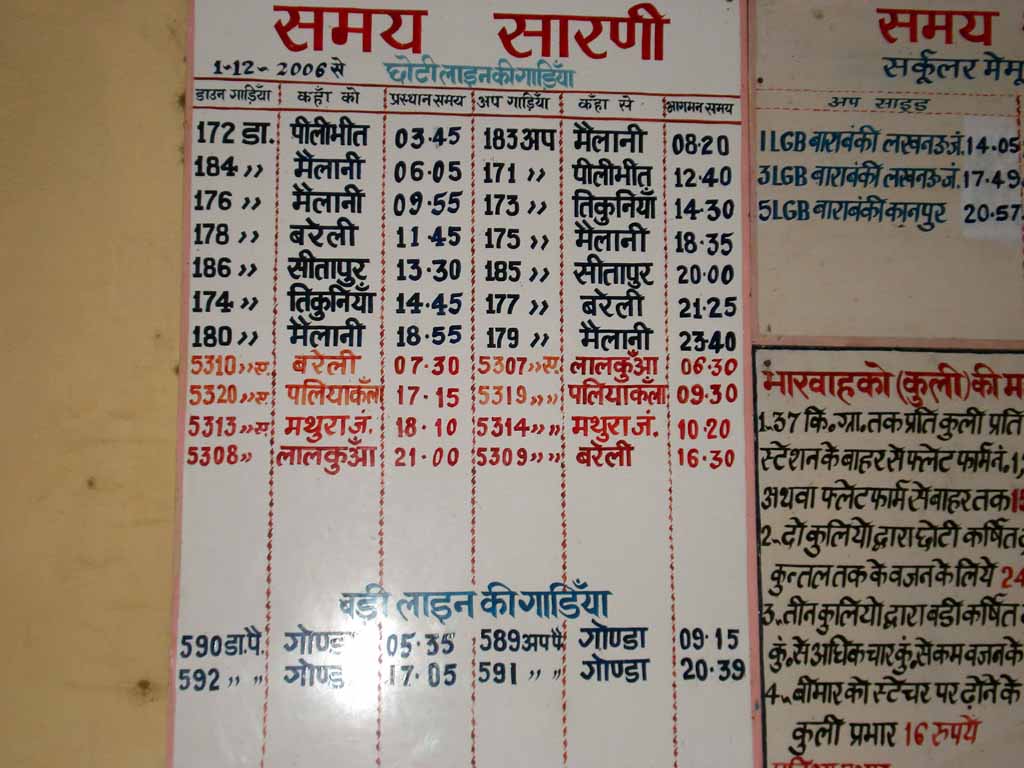 समय सारणी
1-12-2006 से छोटी लाइन की गाड़ियाँ
डाउन गाड़ियाँ कहाँ को प्रस्थान समय अप गाड़ियाँ कहाँ से आगमन समय
172 डा. पीलीभीत 03.45 183 अप मैलानी 08.20
184 ,, मैलानी 06.05 171 ,, पीलीभीत 12.40
176 ,, मैलानी 09.55 173 ,, तिकुनियाँ 14.30
178 ,, बरेली 11.45 175 ,, मैलानी 18.35
186 ,, सीतापुर 13.30 185 ,, सीतापुर 20.00
174 ,, तिकुनियाँ 14.45 177 ,, बरेली 21.25
180 ,, मैलानी 18.55 179 ,, मैलानी 23.40
5310 ,, ए. बरेली 07.30 5307 ,, ए. लालकुँआ 06.30
5320 ,, ए. पलियाकलाँ 17.15 5319 ,, ,, पलियाकलाँ 09.30
5313 ,, ए. मथुरा जं. 18.10 5314 ,, ,, मथुरा जं. 10.20
5308 ,, लालकुँआ 21.00 5309 ,, ,, बरेली 16.30
बड़ी लाइन की गाड़ियाँ
590 डा. पै. गोण्डा 05.35 589 अप पै. गोण्डा 09.15
592 ,, ,, गोण्डा 17.05 591 ,, ,, गोण्डा 20.39
समय
सर्कूलर मेमू
अप साइड
1LGB बाराबंकी लखनऊ जं. 14.05
3LGB बाराबंकी लखनऊ जं. 17.49
5LGB बाराबंकी कानपुर 20.57
भारवाहको (कुली) की
1. 37 कि. ग्रा. तक प्रति कुली प्रति
स्टेशन के बाहर से प्लेट फार्म नं. 1,
अथवा प्लेट फार्म से बाहर तक
2. दो कुलियो द्वारा छोटी कर्षित
कुन्तल तक के वजन के लिये 24
3. तीन कुलियो द्वारा बडी कर्षित
कुं. से अधिक चार कुं. से कम वजन के
4. बीमार को स्टेचर पर ढोने के
कुली प्रभार 16 रुपये